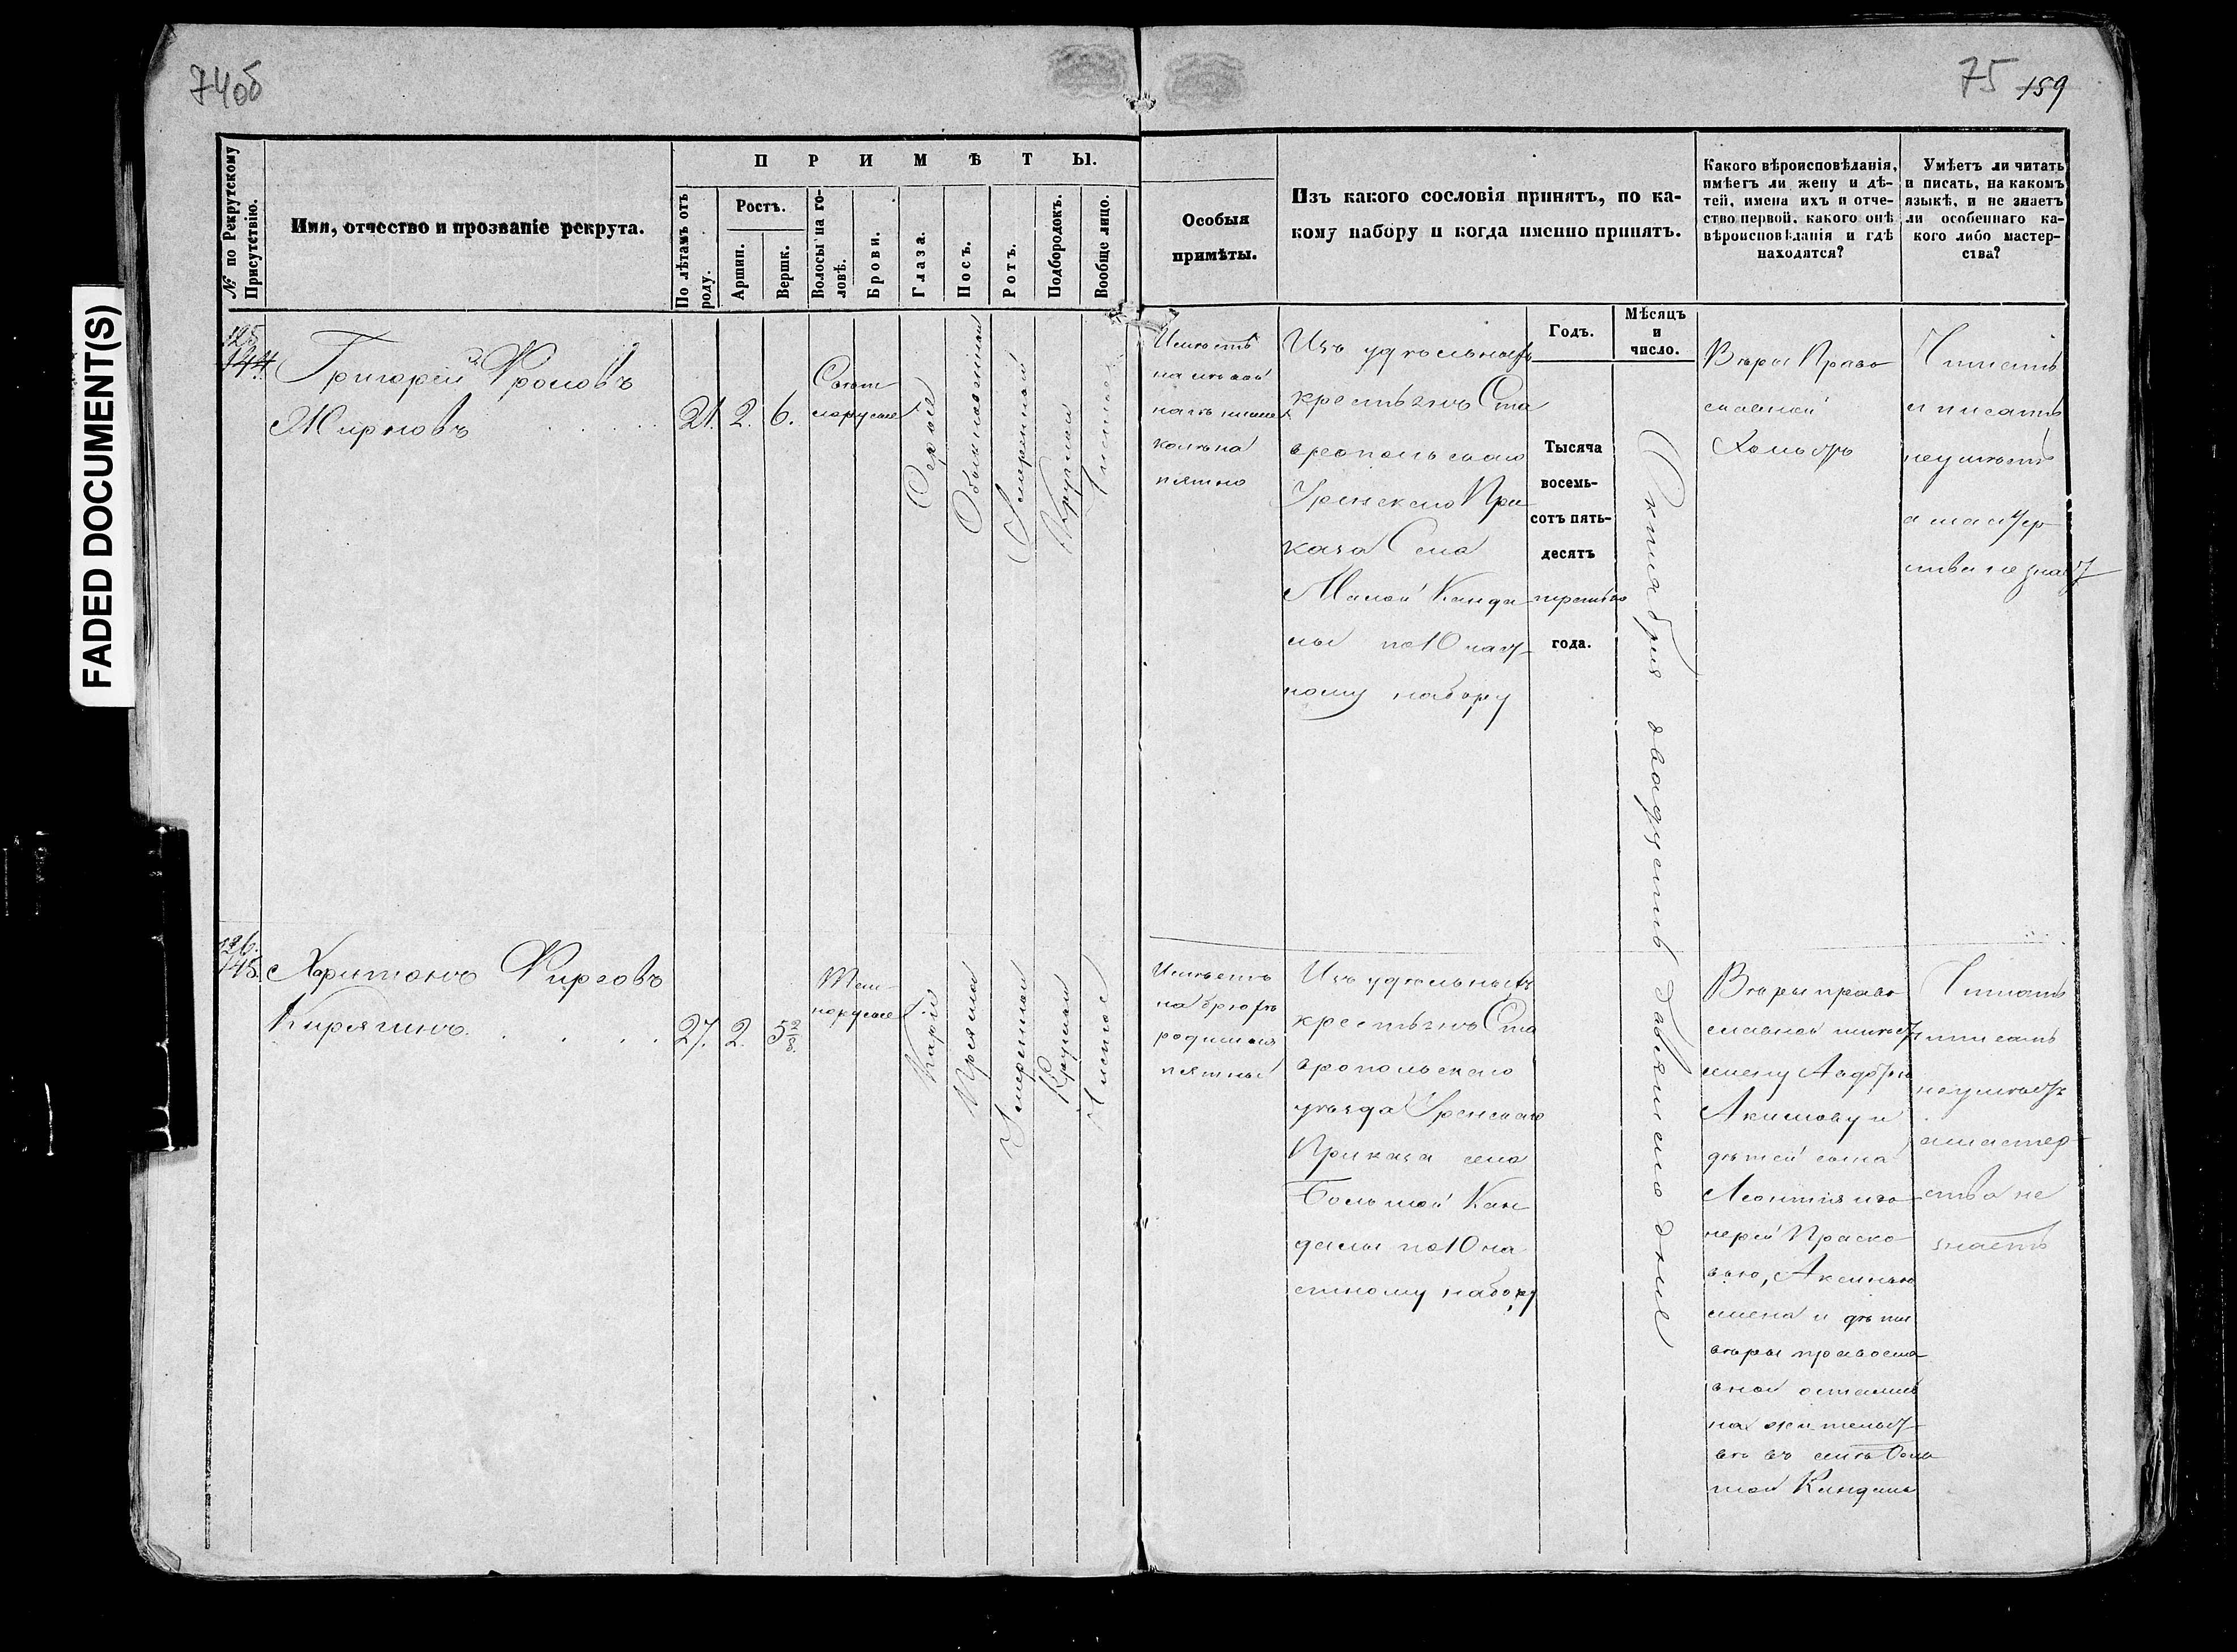 74об
75 159
FADED DOCUMENT(S)
№ по Рекрутскому Присутствію.
Имя, отчество и прозваніе рекрута.
ПРИМѢТЫ.
По лѣтамъ отъ роду.
Ростъ.
Аршин.
Вершк.
Волосы на го-
ловѣ.
Брови.
Глаза.
Носъ.
Ротъ.
Подбородокъ.
Вообще лицо.
Особыя
примѣты.
Изъ какого сословія принятъ, по ка-
кому набору и когда именно принятъ.
Какого вѣроисповѣданія,
имѣетъ ли жену и дѣ-
тей, имена ихъ и отче-
ство первой, какого онѣ
вѣроисповѣданія и гдѣ
находятся?
Умѣетъ ли читать
и писать, на какомъ
языкѣ, и не знаетъ
ли особеннаго ка-
кого либо мастер-
ства?
Годъ.
Мѣсяцъ
и
число.
125
144
Григорей Фроловъ
Жирновъ
21. 2. 6.
Свѣт
лорусые
Серые
Обыкновенной
Умеренной
Круглой
Чистое
Имѣетъ
на левой
колена
пятно
Изъ удельныхъ
крестьянъ Ста
вропольскаго
Уренскаго При
каза Села
Малой Канда
лы по 10 част
ному набору
Тысяча
восемь-
сотъ пять-
десятъ
третьяго
года.
Октября двадцать девятаго дня
Веры Право
славной
Холостъ
Читать
и писать
неумѣетъ
а мастер
ства незнает
126.
145.
Харитонъ Фирсовъ
Кирягинъ.
27. 2. 5 2/8.
Тем
норусые
Карiе
Прямой
Умеренной
Круглой
Чистое
Имѣетъ
на брюхѣ
родимыя
пятны
Изъ удельныхъ
крестьянъ Ста
вропольскаго
уѣзда Уренскаго
Приказа села
Большой Кан
далы по 10 ча
стному набору
Веры право
славной имеет
жену Авдотью
Акимову и
дѣтей сына
Леонтия и до
черей Праско
вью, Аксинью
жена и дѣти
веры правосла
вной остались
на жительст
ве въ селѣ Боль
шой Кандалы
Читать
и писать
неумѣетъ
а мастер
ства не
знаетъ